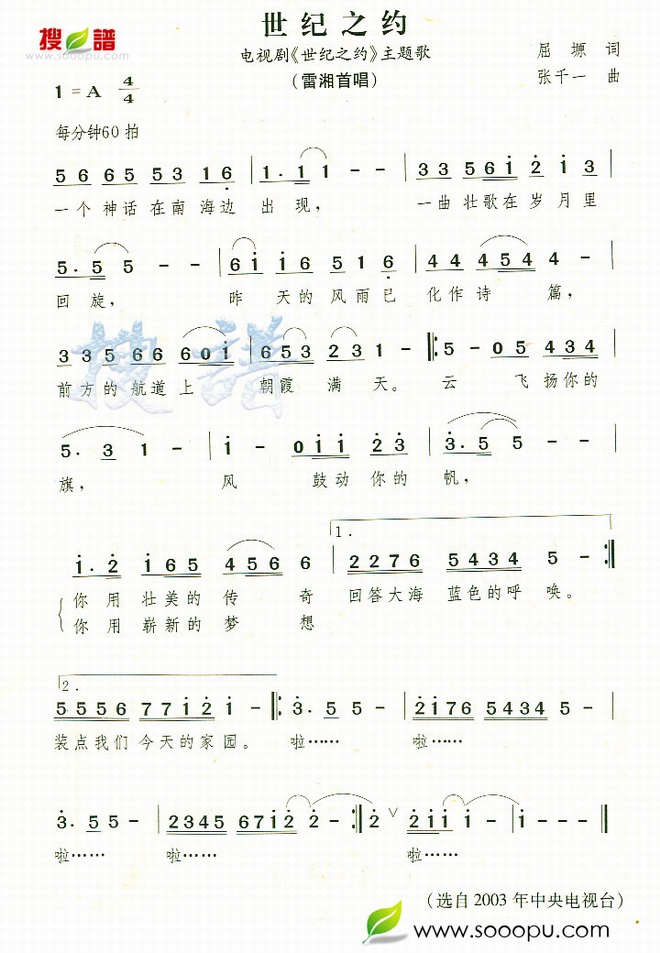 搜谱
www.sooopu.com
世纪之约
电视剧《世纪之约》主题歌
(雷湘首唱)
屈塬 词
张千一 曲
1=A 4/4
每分钟60拍
5 6 6 5 5 3 1 6 | 1. 1 1 - - | 3 3 5 6 i 2 i 3 |
一个 神话 在南 海边 出 现, 一曲 壮歌在 岁 月里
5. 5 5 - - | 6 i i 6 5 1 6 | 4 4 4 5 4 4 - |
回 旋, 昨 天的 风雨已 化作 诗 篇,
3 3 5 6 6 6 0 i | 6 5 3 2 3 1 - ‖: 5 - 0 5 4 3 4 |
前方的 航道 上 朝霞 满 天。 云 飞 扬你的
5. 3 1 - | i - 0 i i 2 3 | 3. 5 5 - - |
旗, 风 鼓动 你的 帆,
1.
i. 2 i 6 5 4 5 6 6 | 2 2 7 6 5 4 3 4 5 - :‖
你 用 壮 美的 传 奇 回答大海 蓝色的呼 唤。
你 用 崭 新的 梦 想
2.
5 5 5 6 7 7 i 2 i - ‖: 3. 5 5 - | 2 i 7 6 5 4 3 4 5 - |
装点我们 今天的家 园。 啦…… 啦……
3. 5 5 - | 2 3 4 5 6 7 i 2 2 - :‖ 2 ∨ 2 i i i - | i - - - ‖
啦…… 啦…… 啦……
(选自 2003 年中央电视台)
www.sooopu.com